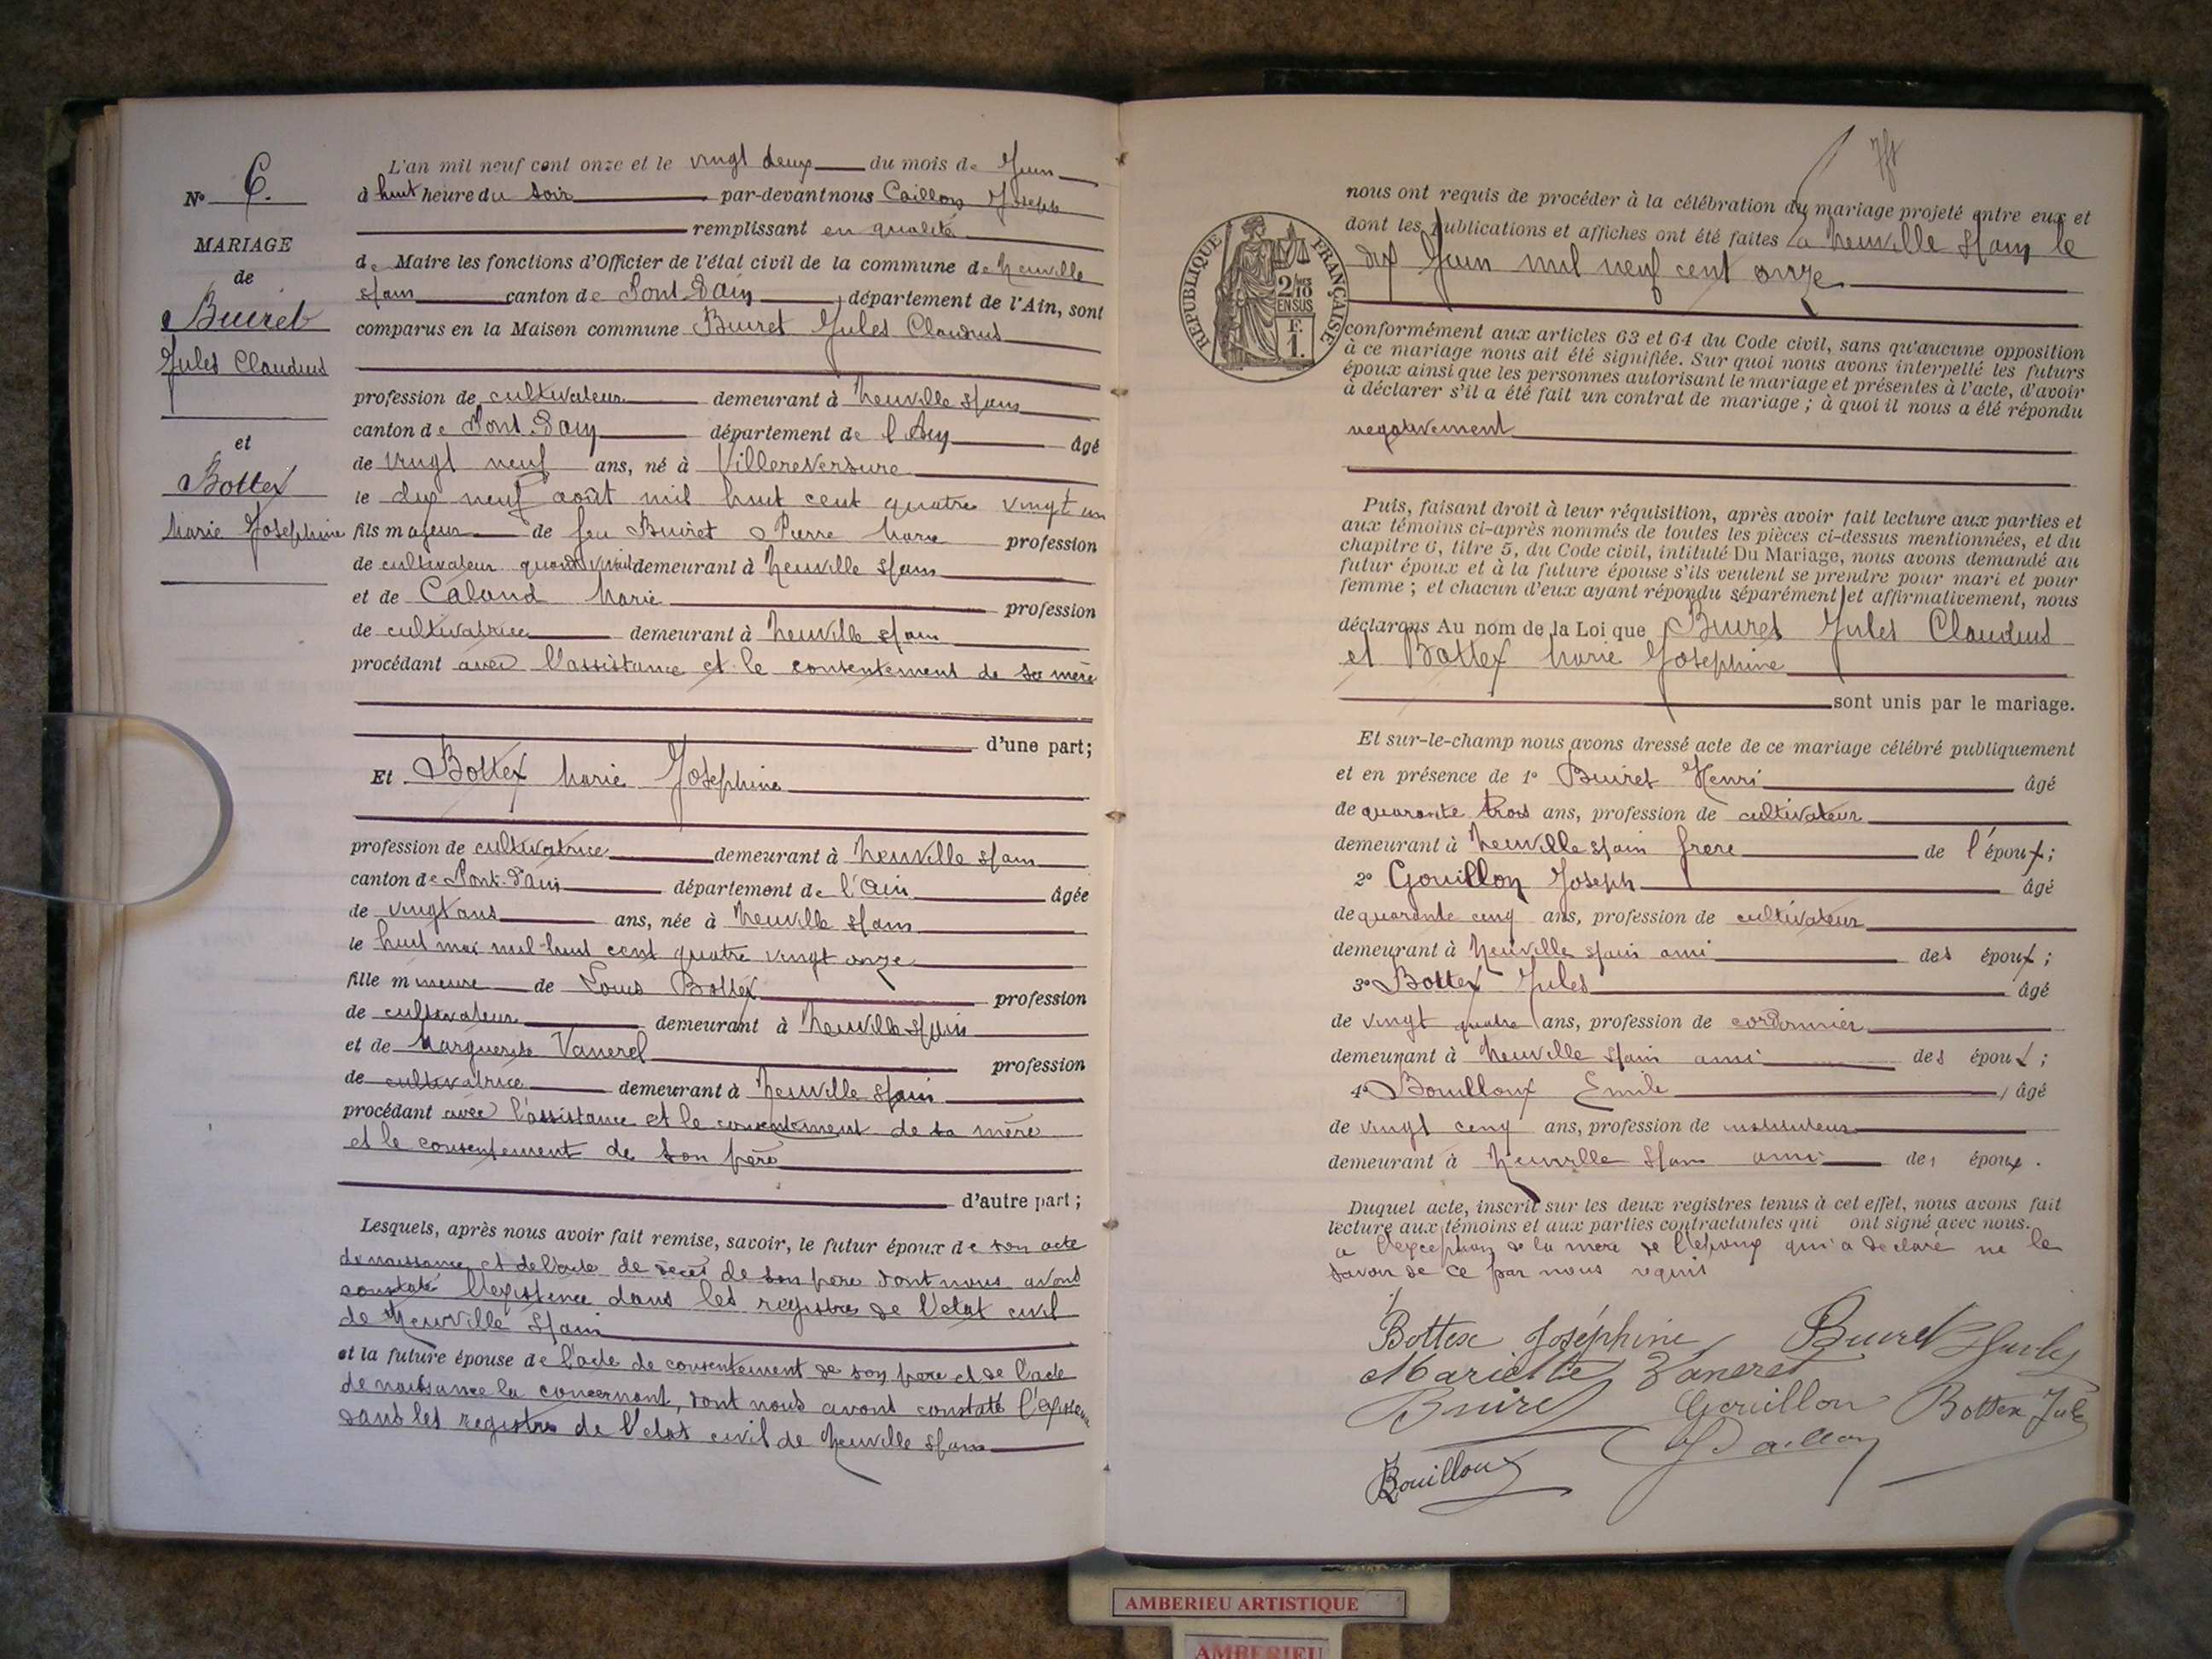 Nº 6.
MARIAGE
de
Buiret
Jules Claudius
et
Bottex
Marie Josephine
L'an mil neuf cent onze et le vingt deux du mois de Juin
à huit heure du soir par-devant nous Caillon Joseph
remplissant en qualité
de Maire les fonctions d'Officier de l'état civil de la commune de Neuville
s/ain canton de Pont-d'Ain, département de l'Ain, sont
comparus en la Maison commune Buiret Jules Claudius
profession de cultivateur demeurant à Neuville s/ain
canton de Pont-d'Ain département de l'Ain âgé
de vingt neuf ans, né à Villereversure
le dix neuf août mil huit cent quatre vingt un
fils majeur de feu Buiret Pierre Marie profession
de cultivateur quand vivait demeurant à Neuville s/ain
et de Caland Marie profession
de cultivatrice demeurant à Neuville s/ain
procédant avec l'assistance et le consentement de sa mère
d'une part;
Et Bottex Marie Josephine
profession de cultivatrice demeurant à Neuville s/ain
canton de Pont-d'Ain département de l'Ain âgée
de vingt ans ans, née à Neuville s/ain
le huit mai mil huit cent quatre vingt onze
fille mineure de Louis Bottex profession
de cultivateur demeurant à Neuville s/ain
et de Marguerite Vaneret profession
de cultivatrice demeurant à Neuville s/ain
procédant avec l'assistance et le consentement de sa mère
et le consentement de son père
d'autre part;
Lesquels, après nous avoir fait remise, savoir, le futur époux de son acte
de naissance et de l'acte de décès de son pere dont nous avons
constaté l'existence dans les registres de l'etat civil
de Neuville s/ain
et la future épouse de l'acte de consentement de son pere et de l'acte
de naissance la concernant, dont nous avons constaté l'existence
dans les registres de l'etat civil de Neuville s/ain
nous ont requis de procéder à la célébration du mariage projeté entre eux et
dont les publications et affiches ont été faites à Neuville s/ain le
dix Juin mil neuf cent onze
RÉPUBLIQUE FRANÇAISE
2/10
EN SUS
F.
1.
conformément aux articles 63 et 64 du Code civil, sans qu'aucune opposition
à ce mariage nous ait été signifiée. Sur quoi nous avons interpellé les futurs
époux ainsi que les personnes autorisant le mariage et présentes à l'acte, d'avoir
à déclarer s'il a été fait un contrat de mariage; à quoi il nous a été répondu
negativement
Puis, faisant droit à leur réquisition, après avoir fait lecture aux parties et
aux témoins ci-après nommés de toutes les pièces ci-dessus mentionnées, et du
chapitre 6, titre 5, du Code civil, intitulé Du Mariage, nous avons demandé au
futur époux et à la future épouse s'ils veulent se prendre pour mari et pour
femme; et chacun d'eux ayant répondu séparément et affirmativement, nous
déclarons Au nom de la Loi que Buiret Jules Claudius
et Bottex Marie Josephine
sont unis par le mariage.
Et sur-le-champ nous avons dressé acte de ce mariage célébré publiquement
et en présence de 1º Buiret Henri âgé
de quarante trois ans, profession de cultivateur
demeurant à Neuville s/ain frere de l'époux;
2º Gouillon Joseph âgé
de quarante cinq ans, profession de cultivateur
demeurant à Neuville s/ain ami des époux;
3º Bottex Jules âgé
de vingt quatre ans, profession de cordonnier
demeurant à Neuville s/ain ami des époux;
4º Bouilloux Emile âgé
de vingt cinq ans, profession de instituteur
demeurant à Neuville s/ain ami des époux.
Duquel acte, inscrit sur les deux registres tenus à cet effet, nous avons fait
lecture aux témoins et aux parties contractantes qui ont signé avec nous.
a l'exception de la mere de l'époux qui a declaré ne le
savoir de ce par nous requis
Bottex Joséphine Buiret
Mariette Vaneret
Buiret Gouillon Bottex Jules
J Caillon
Bouilloux
AMBERIEU ARTISTIQUE
AMBERIEU